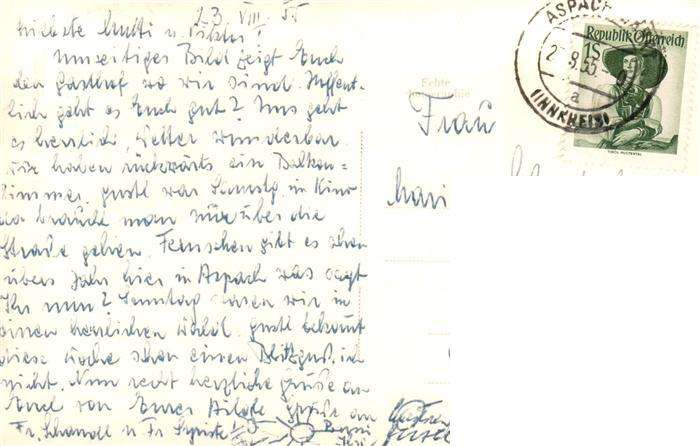 23. VIII. 55
Liebste Mutti u.
Umseitiges Bild zeigt Euch
den Gasthof wo wir sind. Hoffent-
lich geht es Euch gut? Uns geht
es herrlich, Wetter wunderbar.
Wir haben rückwärts ein Balkon-
zimmer. Gustl war Samstg. im Kino
da braucht man nur über die
Straße gehen. Fernsehen gibt es schon
übers Jahr hier in Aspach was sagt
Ihr nun? Sonntag waren wir in
einen herrlichen Wald. Gustl bekommt
diese Woche schon einen Blitzguß, ich
nicht. Nun recht herzliche Grüße an
Euch von Eurer Grüße an
Fr. u Fr.
ASPACH
2 8.55
a
(INNKREIS)
Republik Österreich
1S
Echte
Frau